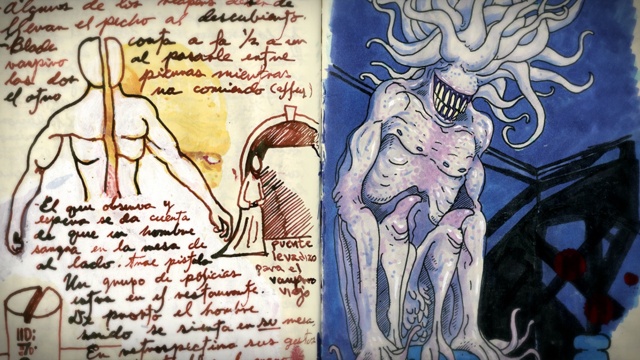 algunos de los
llevan el pecho al descubierto
- Blade corta a la 1/2 a un
vampiro al pasarle entre
las dos piernas mientras
el otro va corriendo
- El que observa y
espera se da cuenta
de que un hombre
sangra en la mesa de
al lado. trae pistola
Un grupo de policías
entra en el restaurante.
De pronto el hombre
se sienta en su mesa
En retrospectiva sus
puente
levadizo
para el
vampiro
viejo